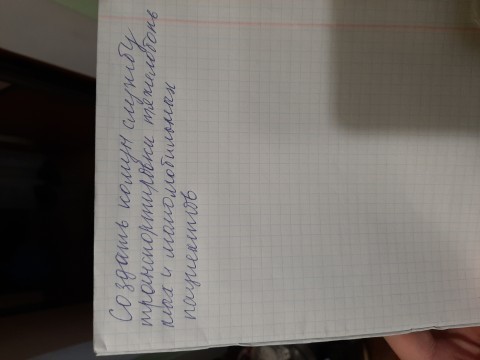 Создать комун службу
транспортировки тяжелоболь
ных и маломобильных
пациентов